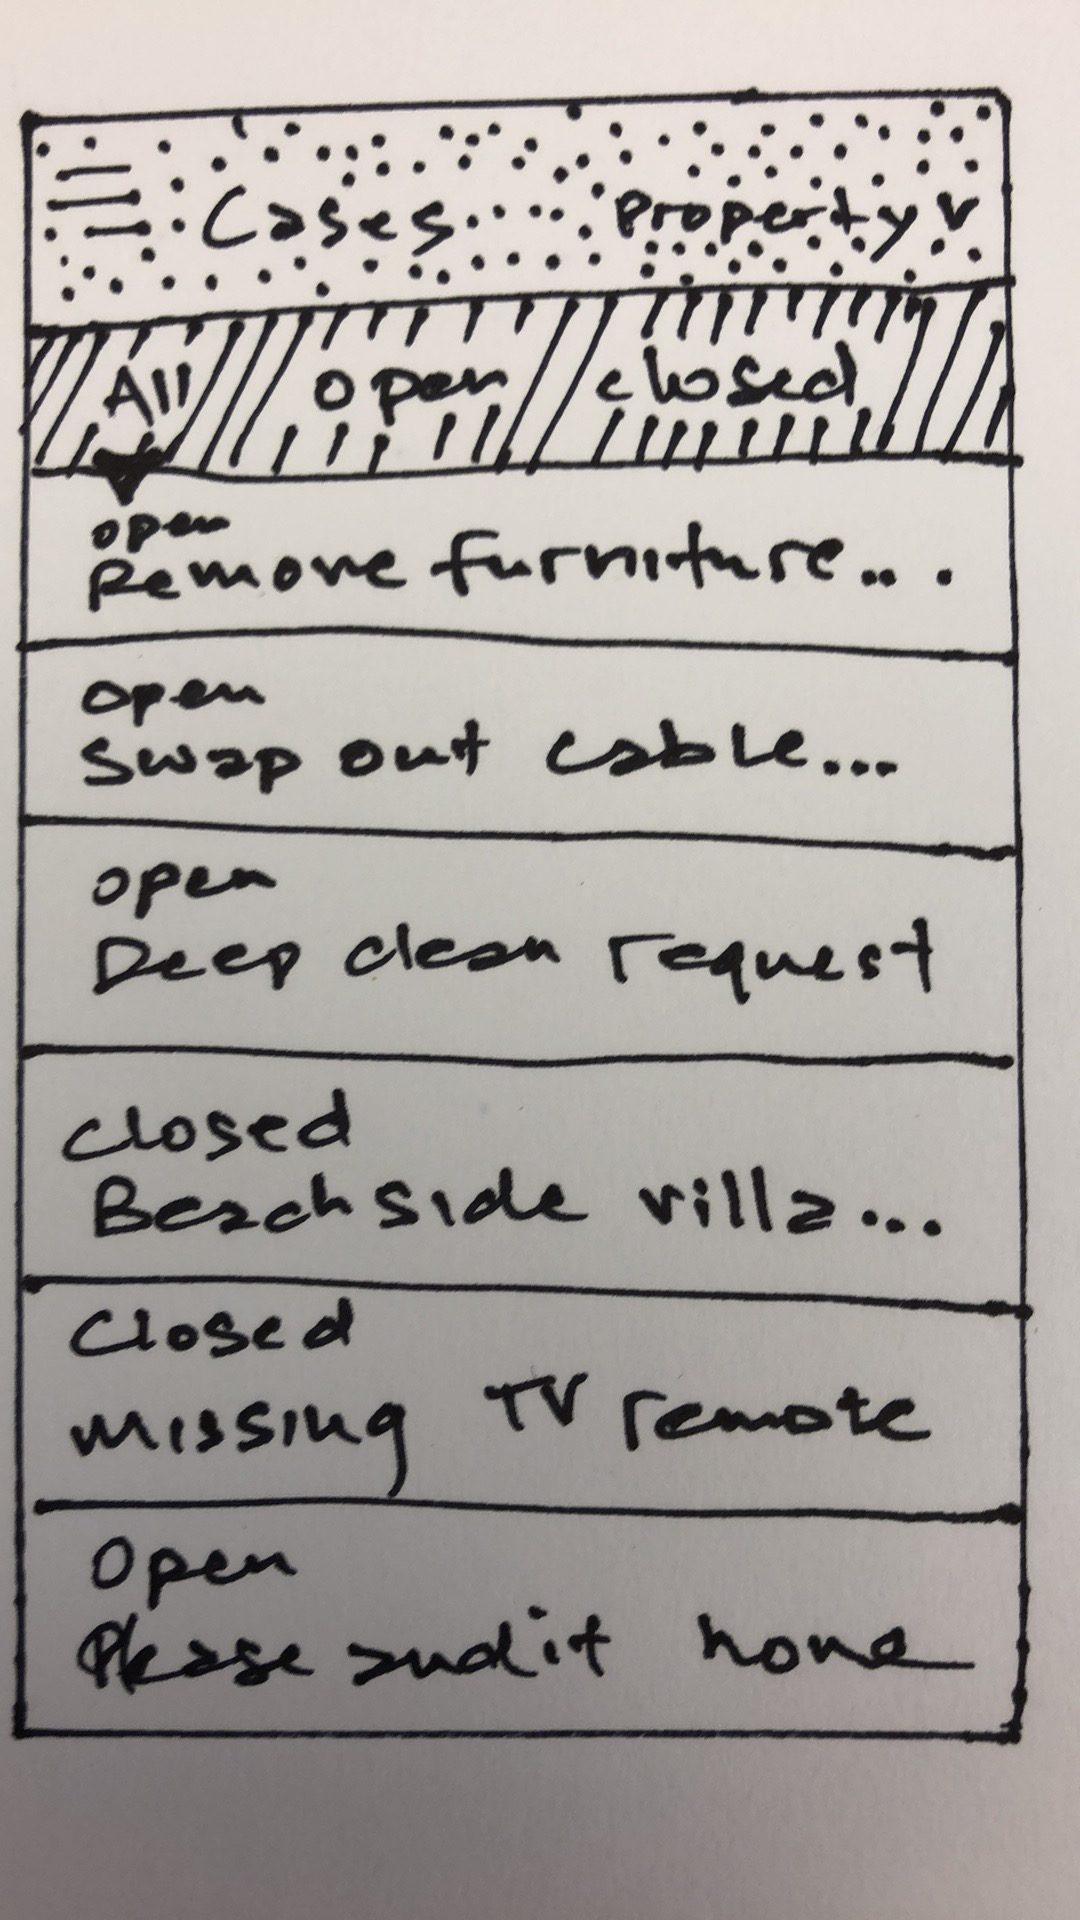 Cases Property v
All open closed
open
Remove furniture...
open
Swap out cable...
open
Deep clean request
closed
Beachside villa...
Closed
Missing TV remote
Open
Please audit home